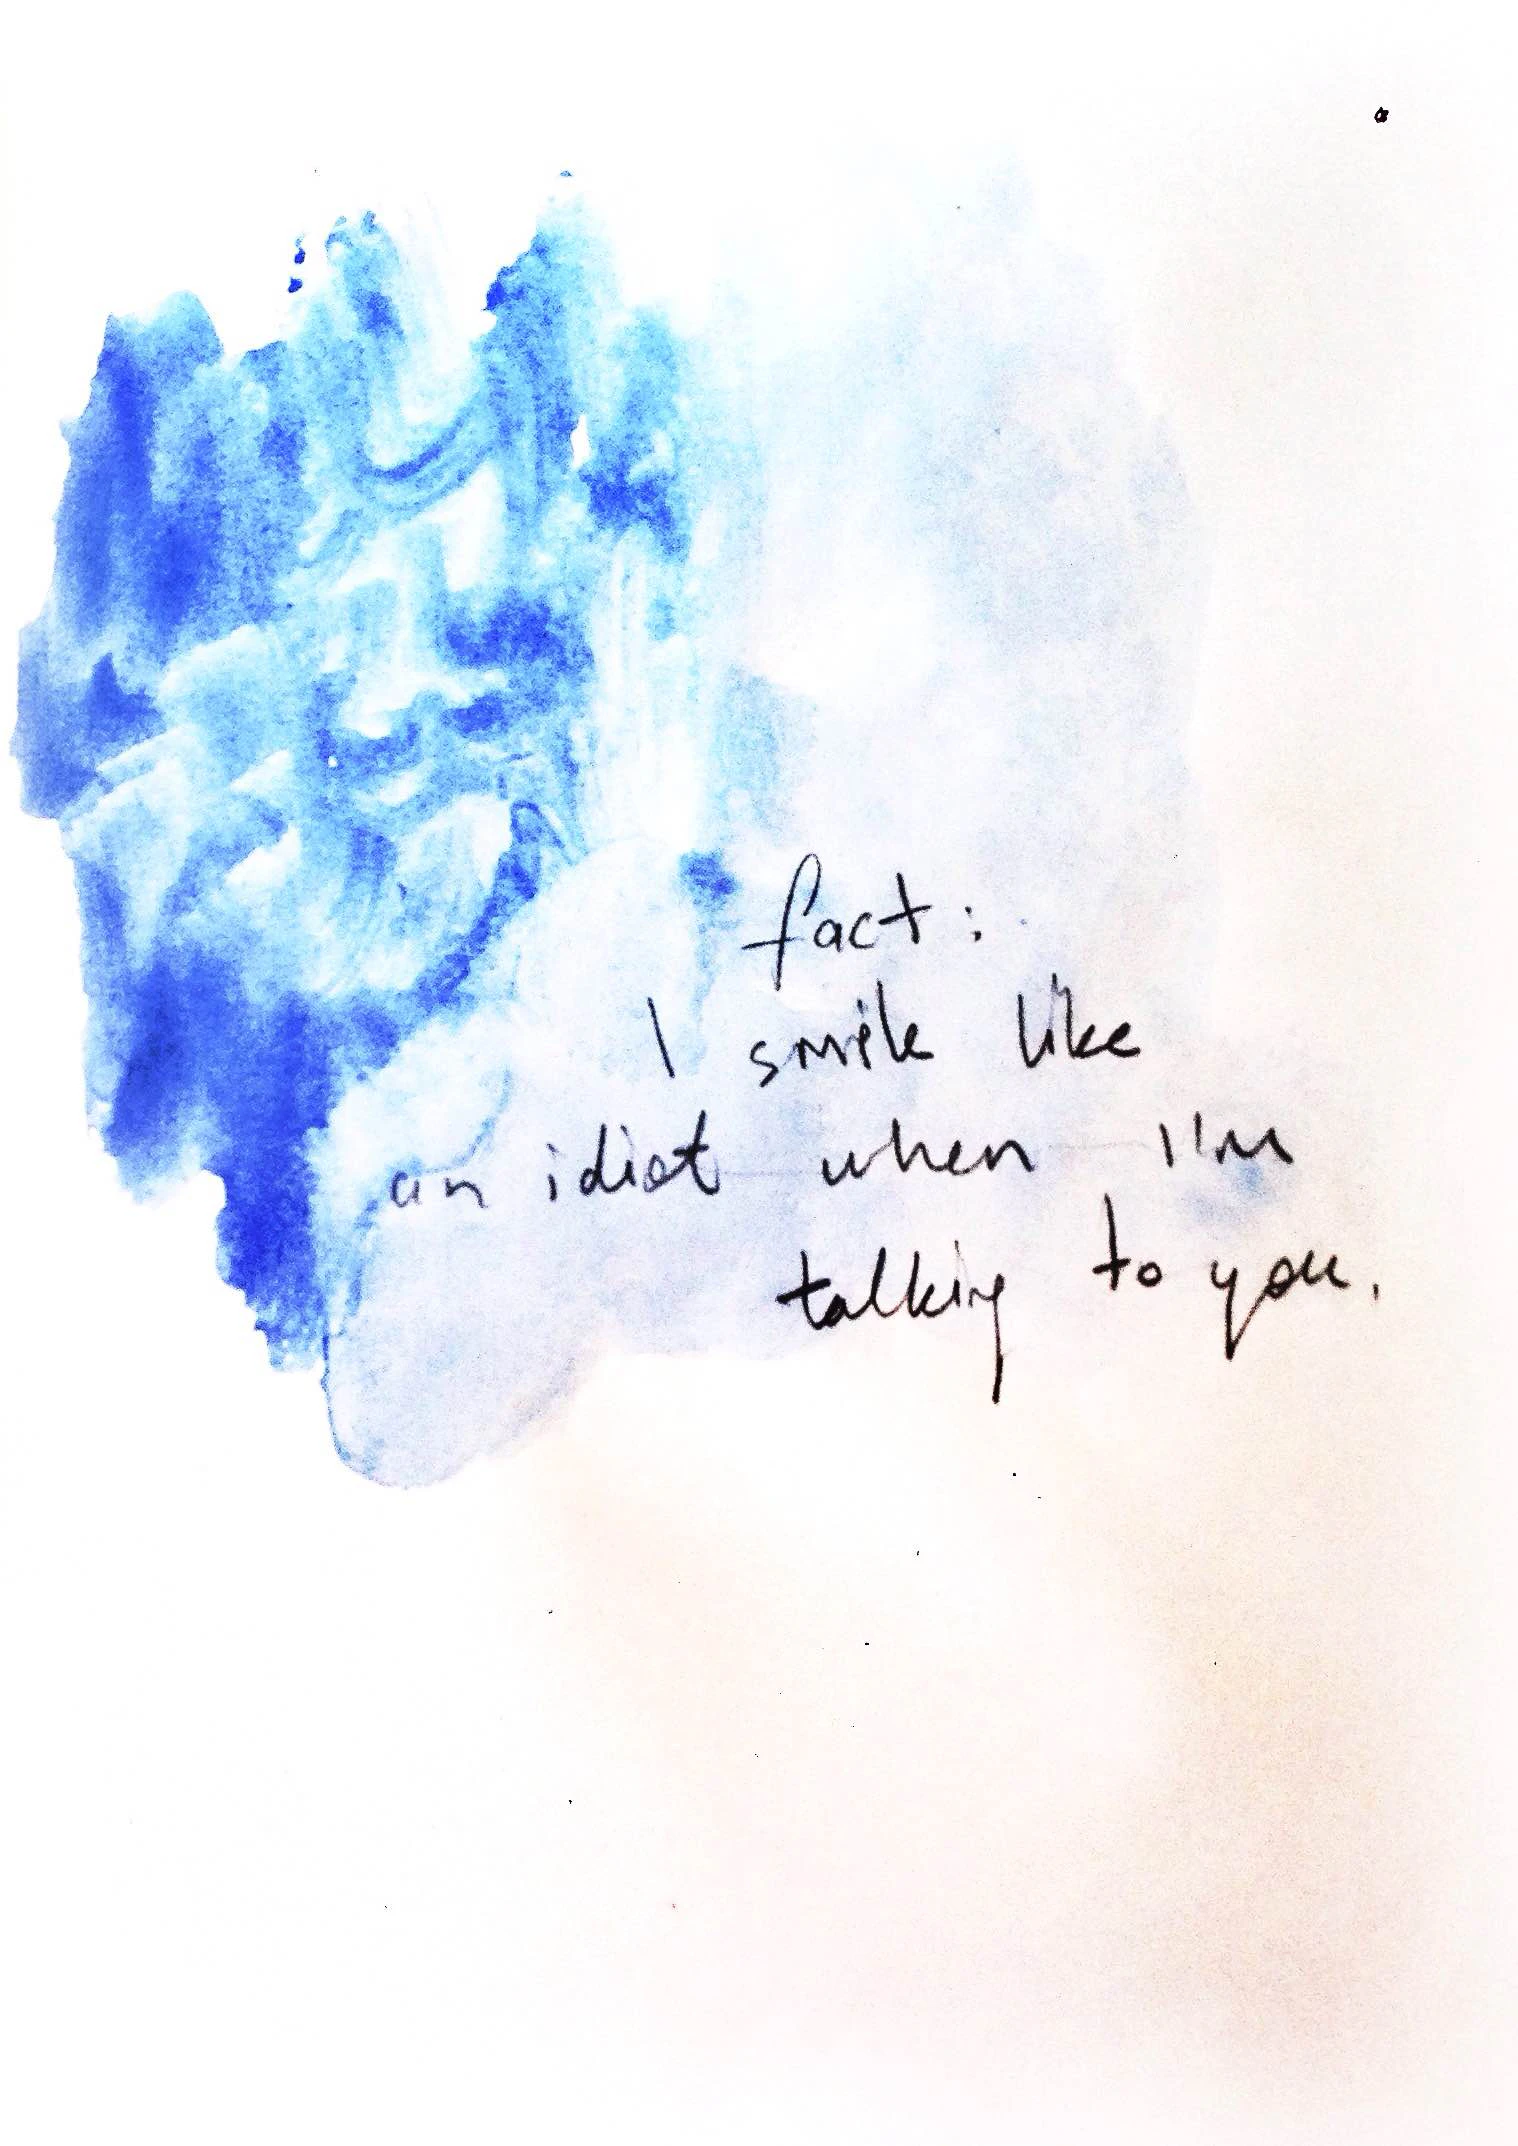 fact:
I smile like
an idiot when I'm
talking to you.